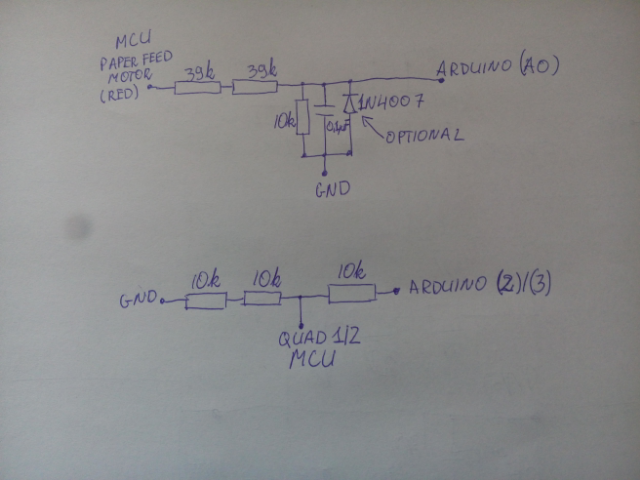 MCU
PAPER FEED
MOTOR
(RED)
39k
39k
ARDUINO (A0)
10k
0,1µF
1N4007
OPTIONAL
GND
10k
10k
10k
GND
ARDUINO (2)/(3)
QUAD 1/2
MCU